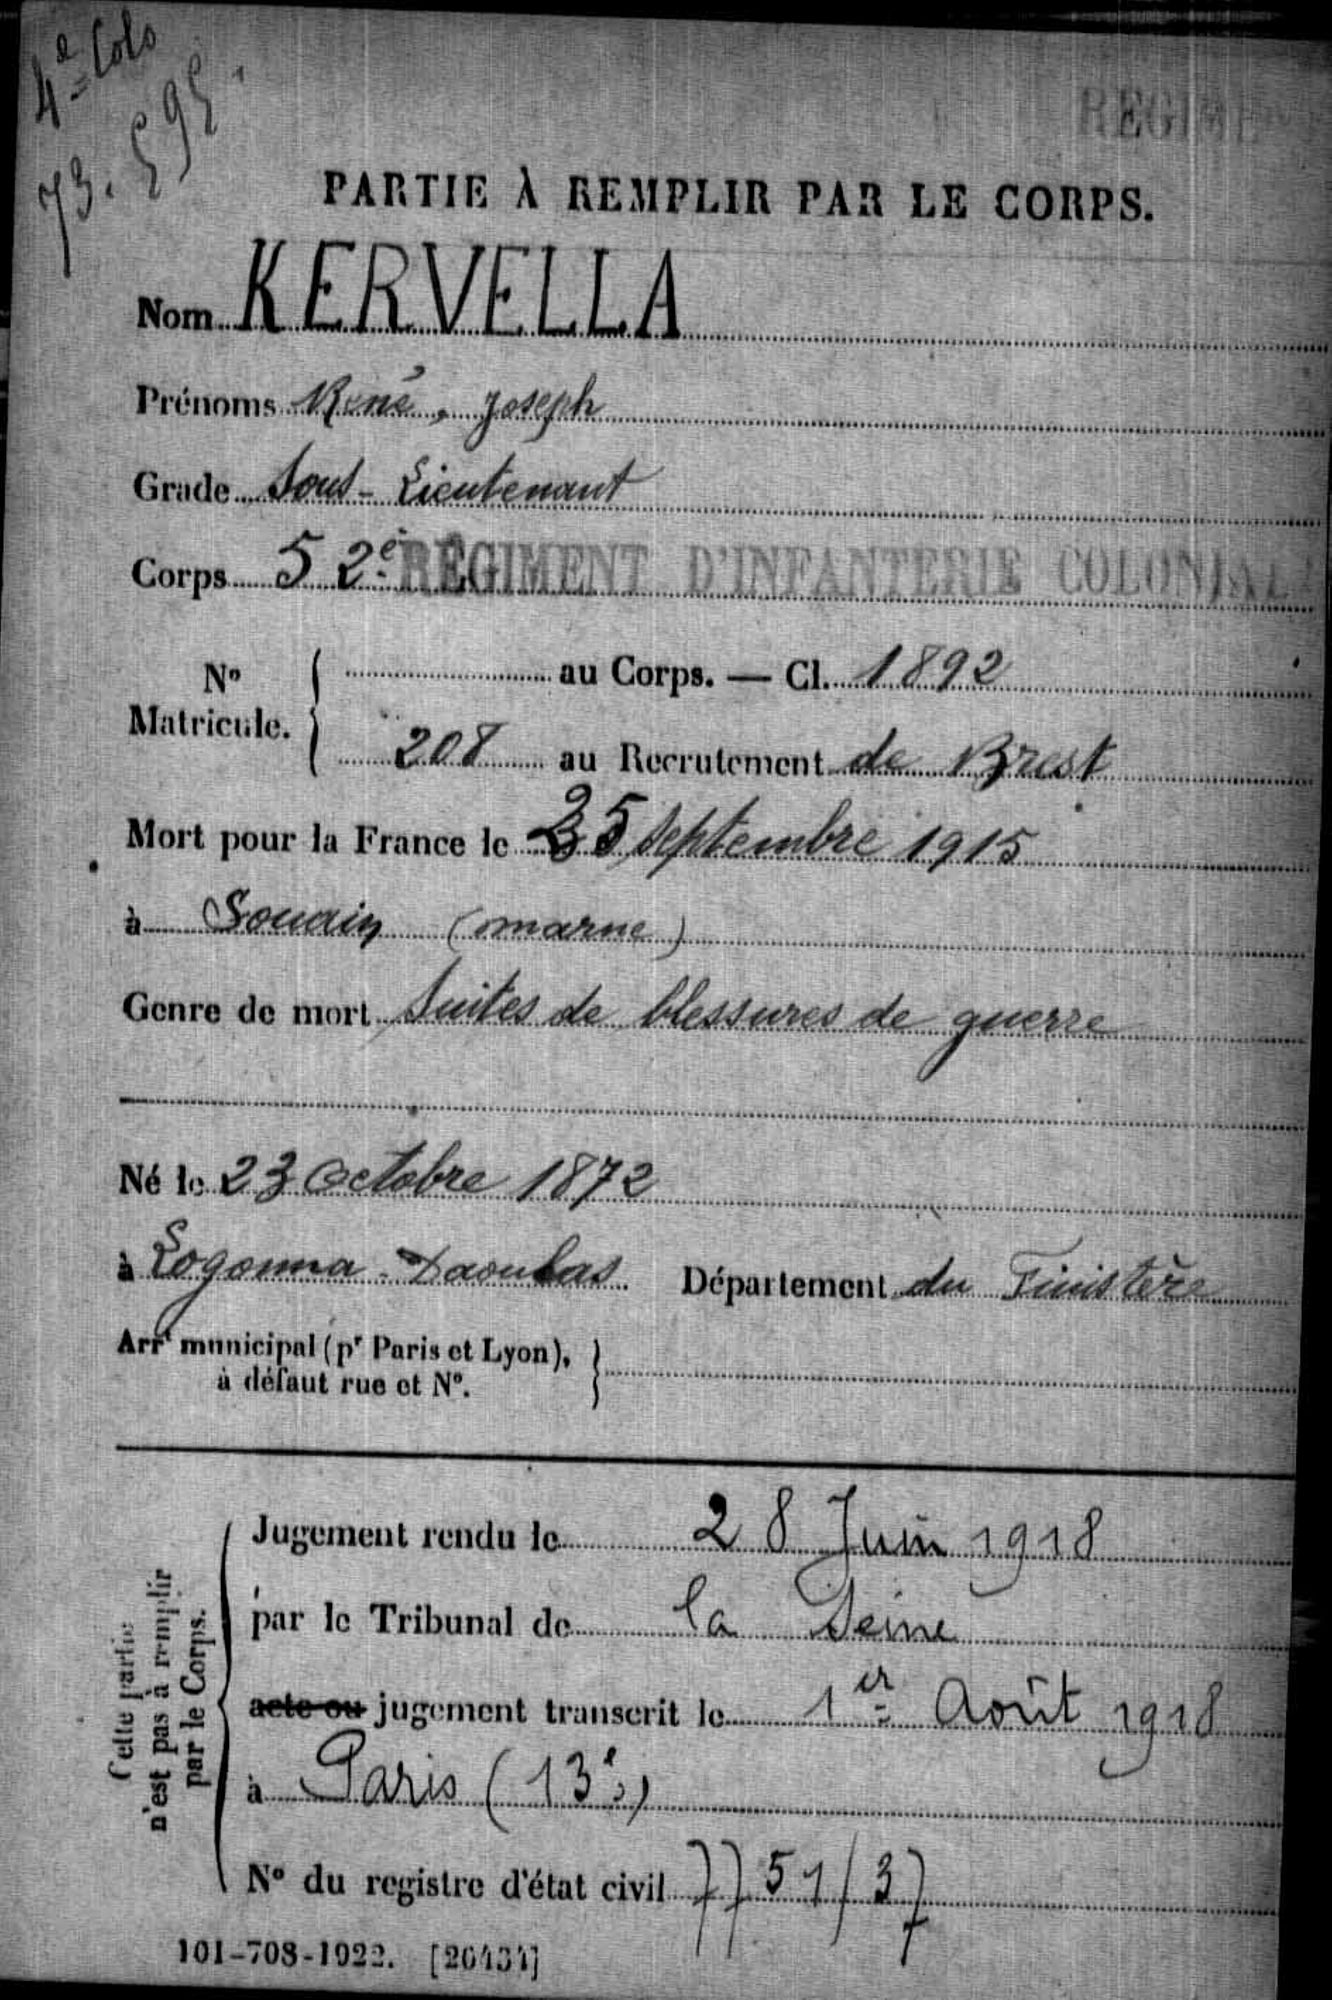 4e Colo
73.595.
REGIME
PARTIE À REMPLIR PAR LE CORPS.
Nom KERVELLA
Prénoms René, Joseph
Grade Sous-Lieutenant
Corps 52e REGIMENT D'INFANTERIE COLONIALE
No Matricule. { au Corps. — Cl. 1892
208 au Recrutement de Brest
Mort pour la France le 25 Septembre 1915
à Souain (Marne)
Genre de mort Suites de blessures de guerre
Né le 23 Octobre 1872
à Logonna-Daoulas Département du Finistère
Arrt municipal (pr Paris et Lyon), }
à défaut rue et No.
Cette partie
n'est pas à remplir
par le Corps.
Jugement rendu le 28 Juin 1918
par le Tribunal de la Seine
acte ou jugement transcrit le 1er Août 1918
à Paris (13e)
No du registre d'état civil 7751/37
101-708-1922. [26434]